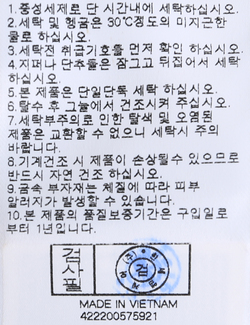 1.중성세제로 단 시간내에 세탁하십시오.
2.세탁 및 헹굼은 30℃정도의 미지근한
물로 하십시오.
3.세탁전 취급기호를 먼저 확인 하십시오.
4.지퍼나 단추들은 잠그고 뒤집어서 세탁
하십시오.
5.본 제품은 단일단독 세탁 하십시오.
6.탈수 후 그늘에서 건조시켜 주십시오.
7.세탁부주의로 인한 탈색 및 오염된
제품은 교환할 수 없으니 세탁시 주의
바랍니다.
8.기계건조 시 제품이 손상될수 있으므로
반드시 자연 건조 하십시오.
9.금속 부자재는 체질에 따라 피부
알러지가 발생할 수 있습니다.
10.본 제품의 품질보증기간은 구입일로
부터 1년입니다.
검사필
검
MADE IN VIETNAM
422200575921